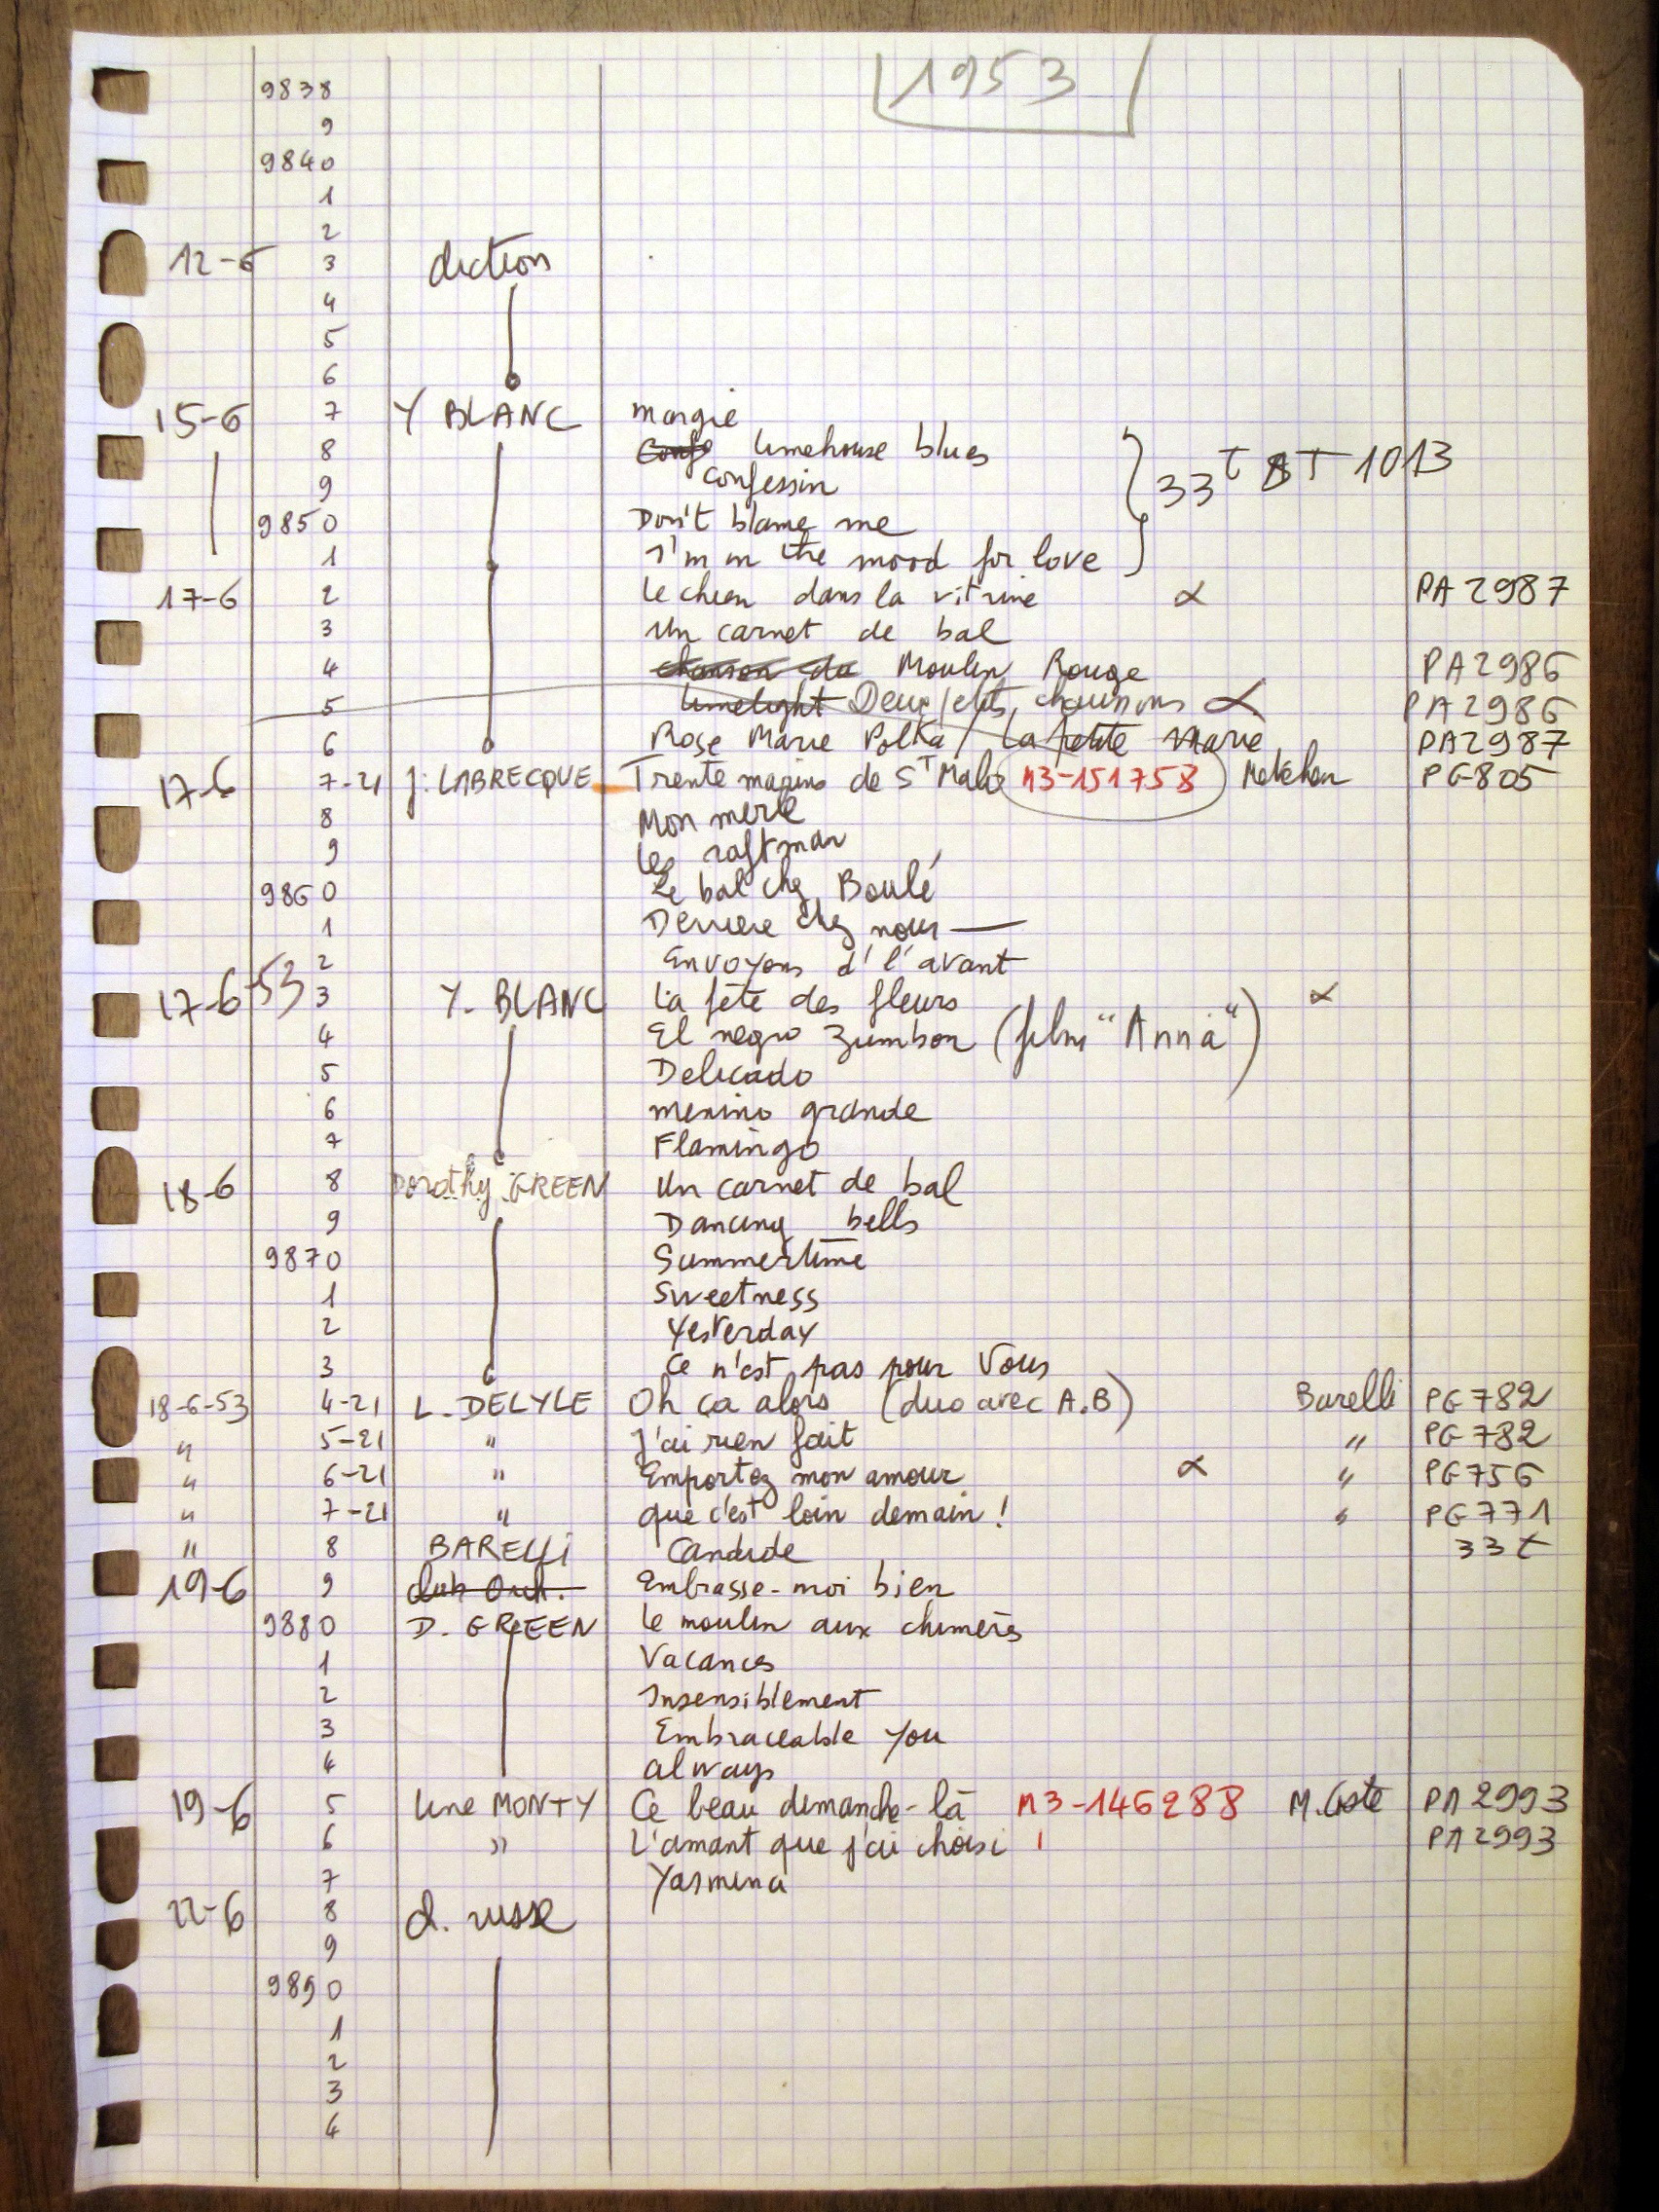 1953
9838
9
9840
1
2
12-6 3 diction
4
5
6
15-6 7 Y BLANC margie
8 limehouse blues
9 confessin 33T ST 1013
9850 Don't blame me
1 I'm in the mood for love
17-6 2 le chien dans la vitrine α PA 2987
3 Un carnet de bal
4 chanson du Moulin Rouge PA 2986
5 limelight Deux petits chaussons α PA 2986
6 Rose Marie Polka / La petite Marie PA 2987
17-6 7-21 J. LABRECQUE Trente marins de ST Malo M3-151758 Metehen PG 805
8 Mon merle
9 les raftman
9860 Le bal chez Boulé
1 Derriere chez nous —
2 Envoyons d'l'avant
17-6-53 3 Y. BLANC la fête des fleurs α
4 El negro zumbon (film "Anna")
5 Delicado
6 menino grande
7 Flamingo
18-6 8 Dorothy GREEN Un carnet de bal
9 Dancing bells
9870 Summertime
1 Sweetness
2 Yesterday
3 Ce n'est pas pour Vous
18-6-53 4-21 L. DELYLE Oh ça alors (duo avec A.B) Barelli PG 782
" 5-21 " J'ai rien fait " PG 782
" 6-21 " Emportez mon amour α " PG 756
" 7-21 " que c'est loin demain ! " PG 771
" 8 BARELLI Candide 33t
19-6 9 Embrasse-moi bien
9880 D. GREEN le moulin aux chimères
1 Vacances
2 Insensiblement
3 Embraceable you
4 always
19-6 5 Line MONTY Ce beau dimanche-là M3-146288 M. Coste PA 2993
6 " L'amant que j'ai choisi PA 2993
7 Yasmina
22-6 8 d. russe
9
9890
1
2
3
4